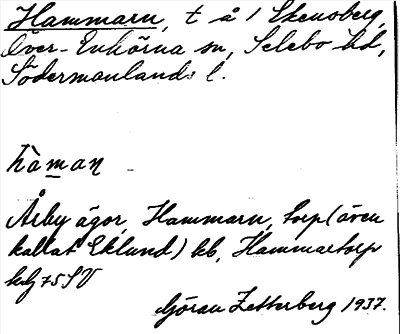 Hammarn, t å 1 Ekensberg,
Över-Enhörna sn, Selebo hd,
Södermanlands l.
hàman
Årby ägor, Hammarn, torp (även
kallat Eklund) kb, Hammartorp
hdj 75 SV
Göran Zetterberg 1937.